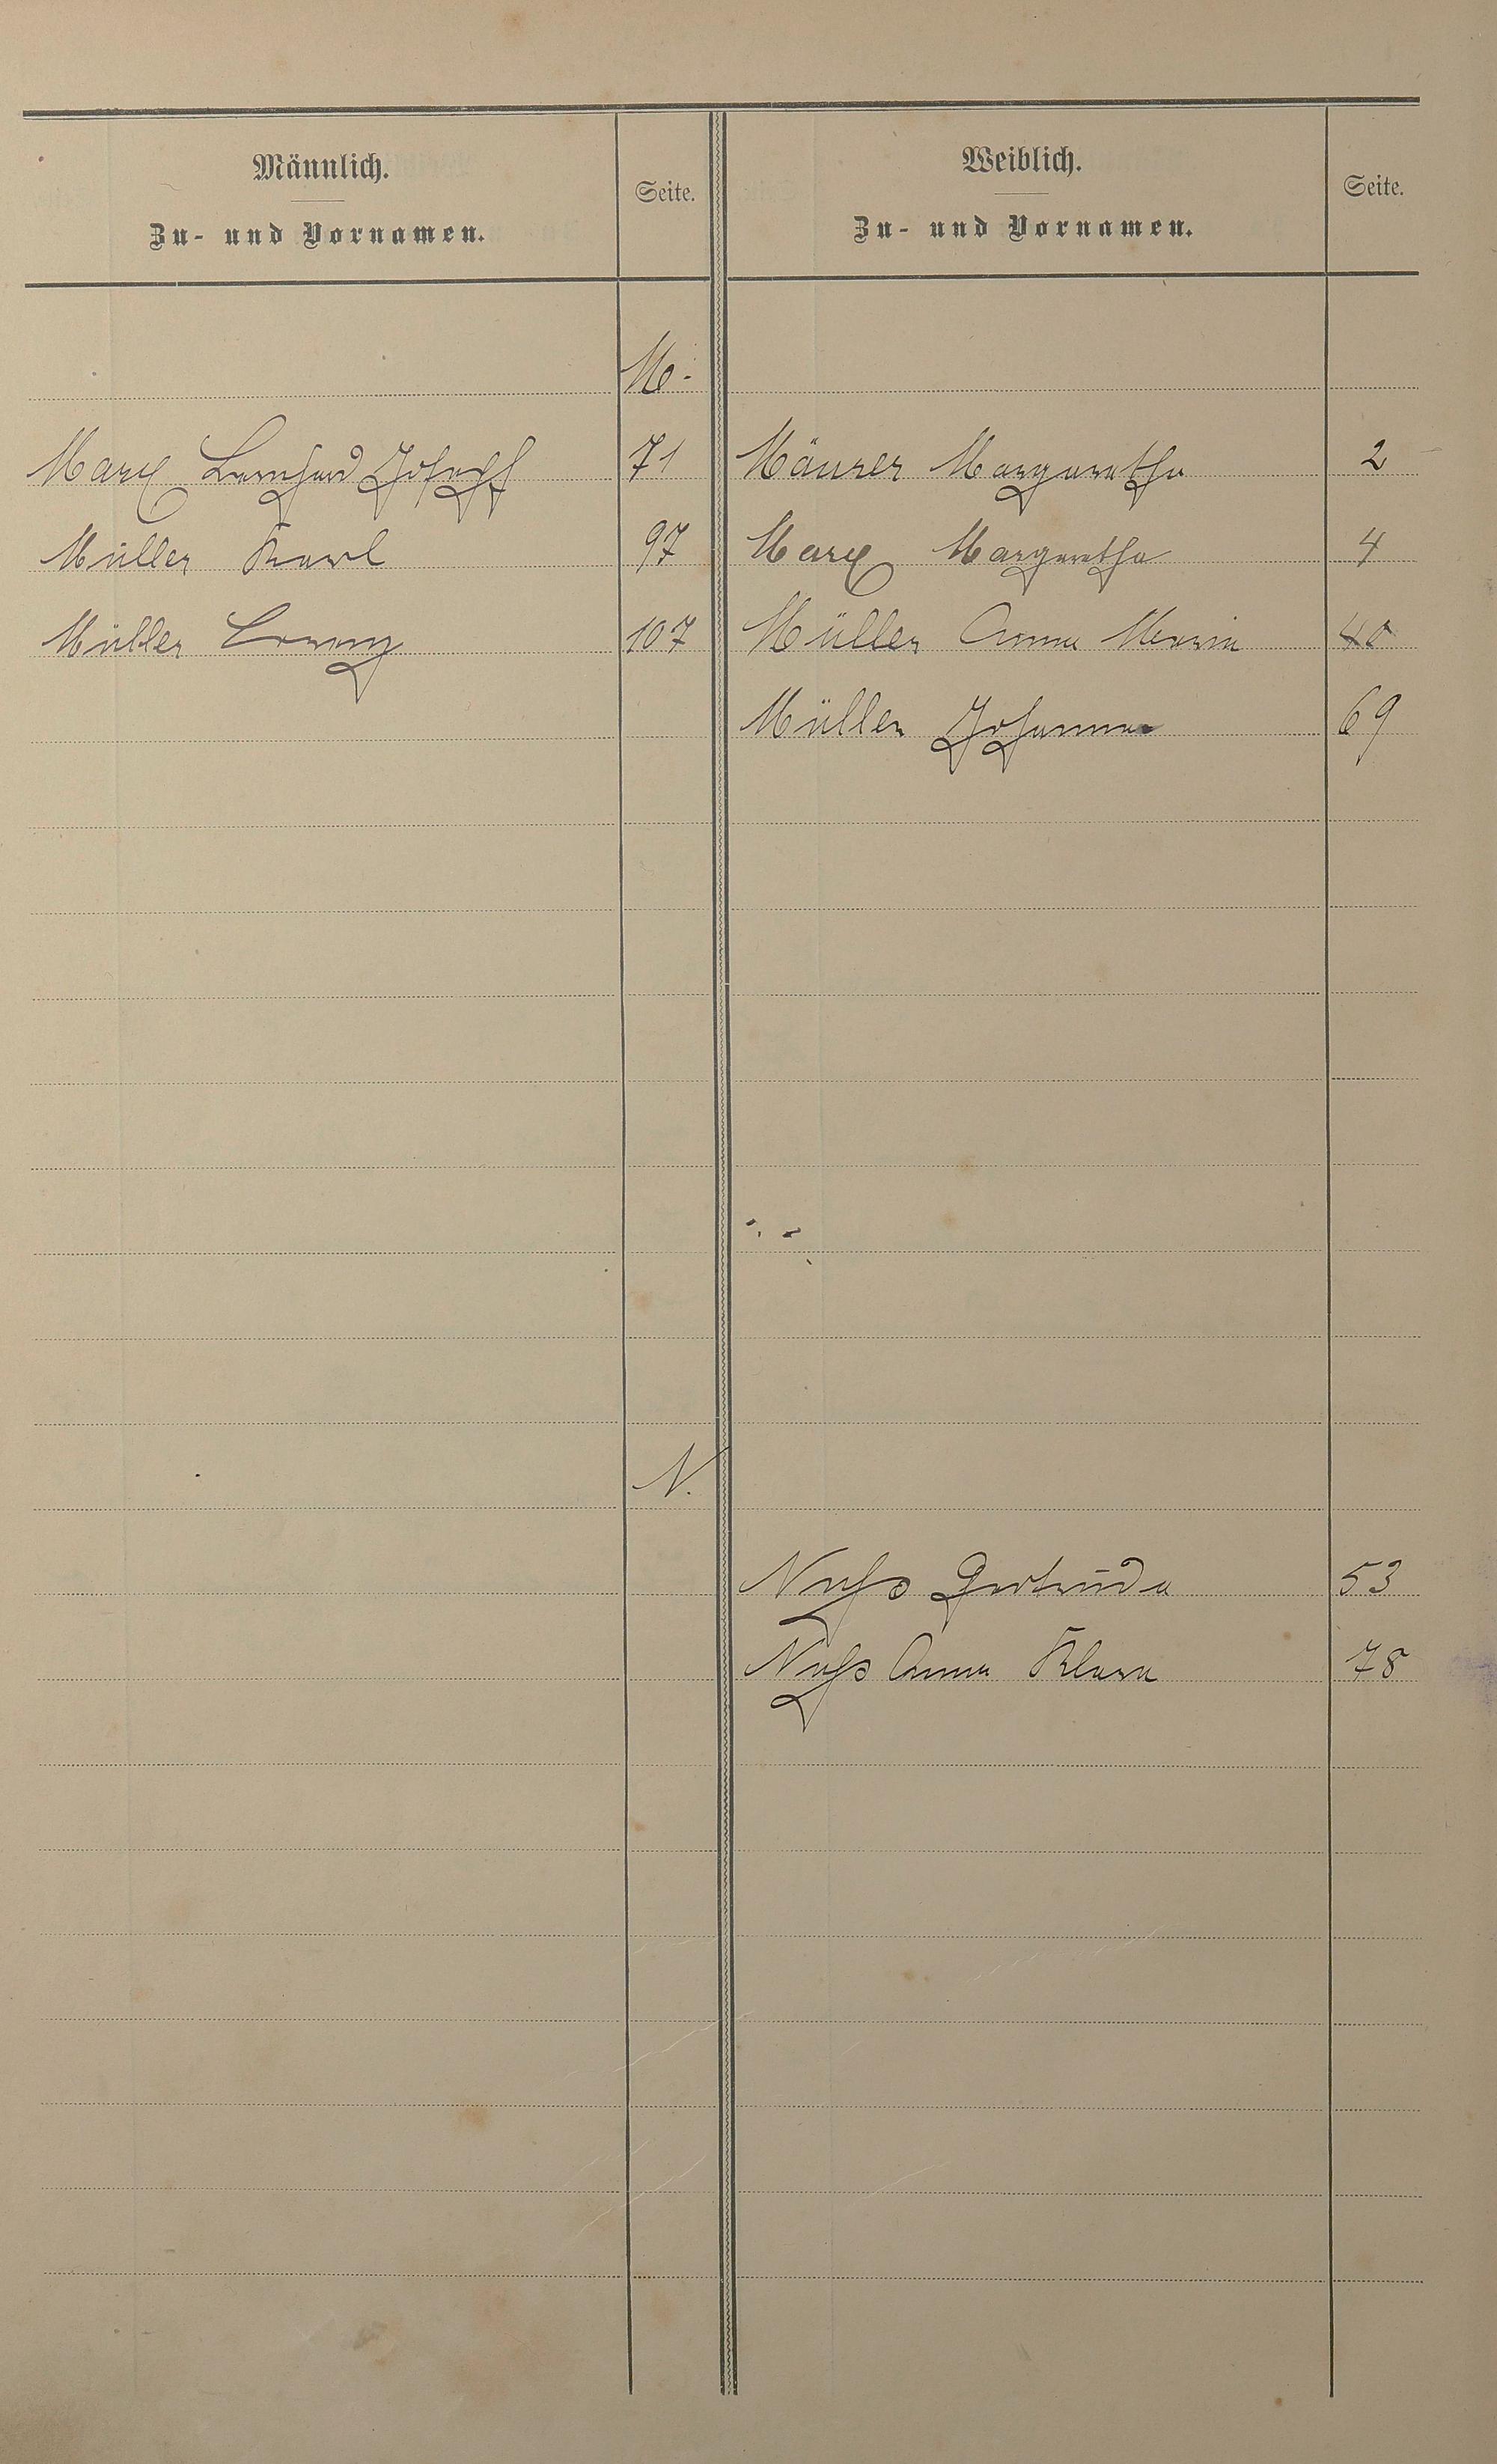 Männlich.
Zu- und Vornamen.
Seite.
Weiblich.
Zu- und Vornamen.
Seite.
M.
Marx Bernhard Joseph 71 Mäurer Margaretha 2
Müller Karl 97 Marx Margaretha 4
Müller Lorenz 107 Müller Anna Maria 40
Müller Johanna 69
N.
Nuß Gertruda 53
Nuß Anna Klara 78